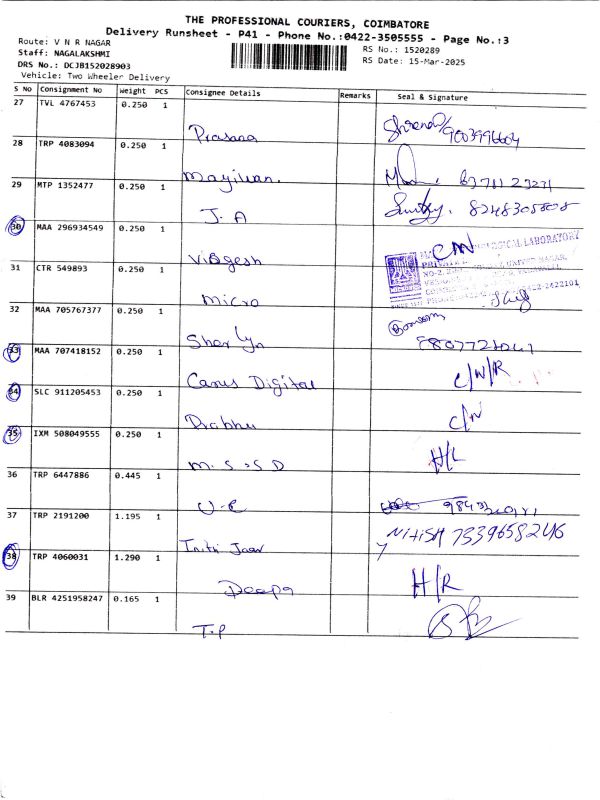 THE PROFESSIONAL COURIERS, COIMBATORE
Delivery Runsheet - P41 - Phone No.:0422-3505555 - Page No.:3
Route: V N R NAGAR
RS No.: 1520289
Staff: NAGALAKSHMI
RS Date: 15-Mar-2025
DRS No.: DCJB152028903
Vehicle: Two Wheeler Delivery
S No Consignment No Weight PCS Consignee Details Remarks Seal & Signature
27 TVL 4767453 0.250 1
Prasana 9003996604
28 TRP 4083094 0.250 1
Mayilvan.
29 MTP 1352477 0.250 1
J. A
30 MAA 296934549 0.250 1
Vignesh C/N
31 CTR 549893 0.250 1
Micro
32 MAA 705767377 0.250 1
33 MAA 707418152 0.250 1
Canus Digital C/N/R
34 SLC 911205453 0.250 1
Prabhu C/N
35 IXM 508049555 0.250 1
M. S. S D H/L
36 TRP 6447886 0.445 1
37 TRP 2191200 1.195 1
NITISH 7339658246
38 TRP 4060031 1.290 1
Deepa H/R
39 BLR 4251958247 0.165 1
T.P